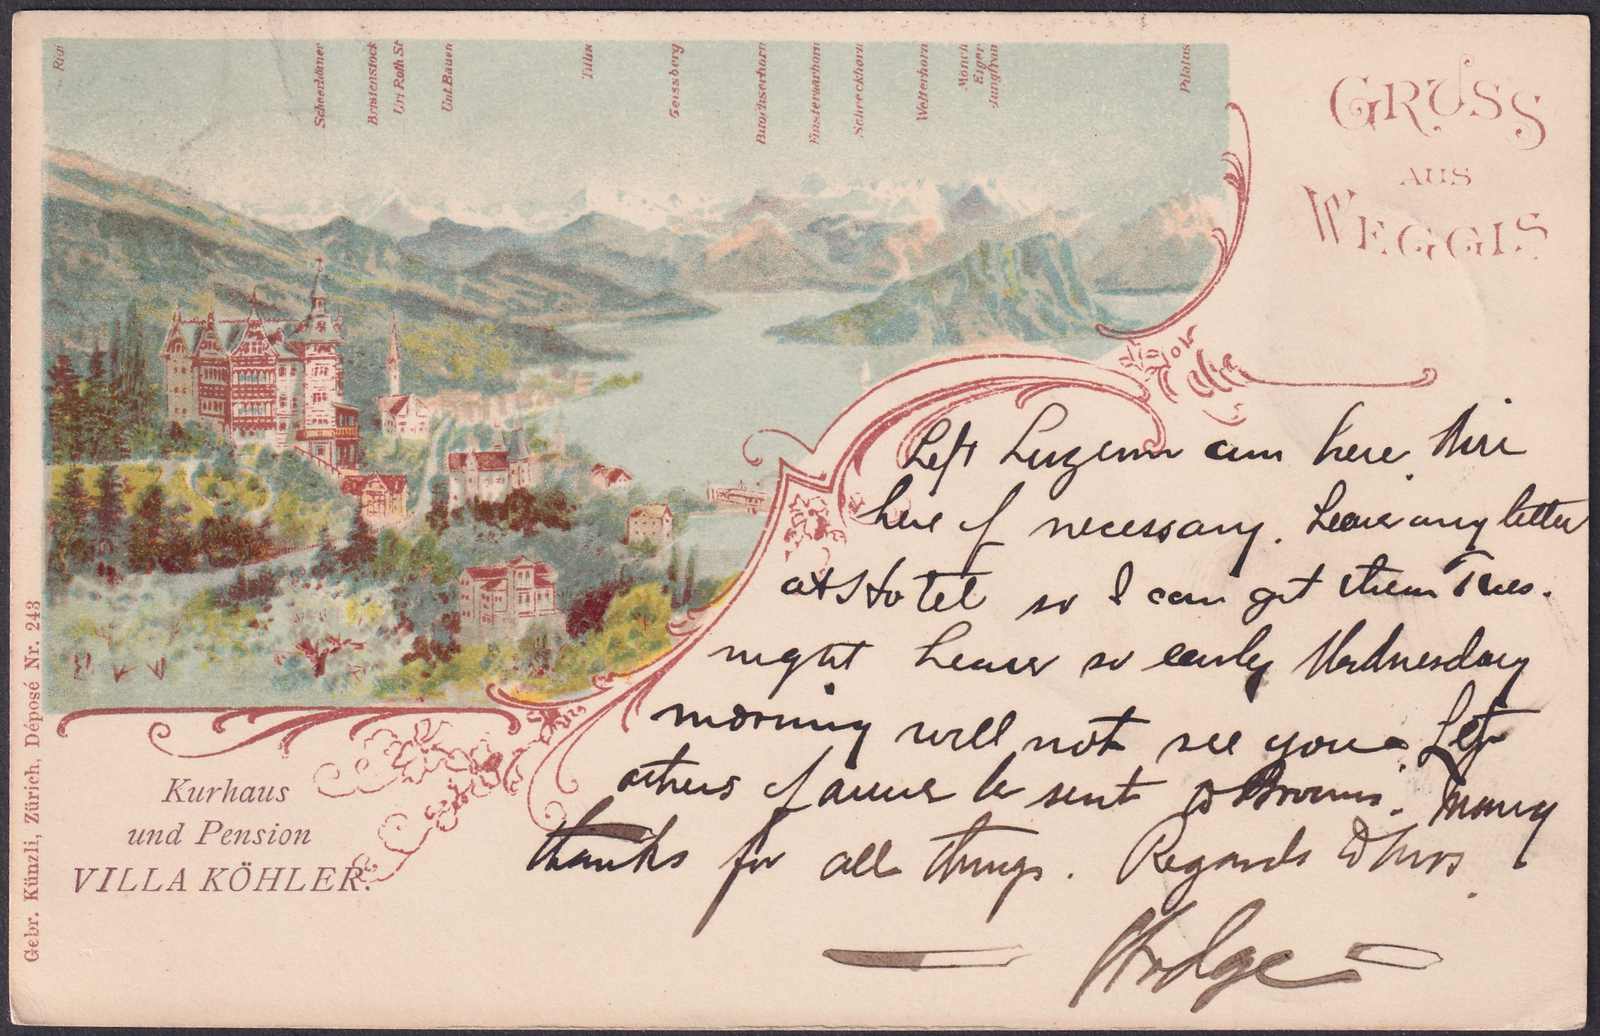 Rigi
Scheerhörner
Bristenstock
Uri Roth St.
Unt. Bauen
Titlis
Geissberg
Buochserhorn
Finsteraarhorn
Schreckhorn
Wetterhorn
Mönch
Eiger
Jungfrau
Pilatus
GRUSS
AUS
WEGGIS
Left Luzern am here Wire
here if necessary. Leave any letter
at Hotel so I can get them Tues.
night Leave so early Wednesday
morning will not see you. Let
others if any be sent to Brown's. Many
thanks for all things. Regards to Mrs.
Hodge
Kurhaus
und Pension
VILLA KÖHLER.
Gebr. Künzli, Zürich, Déposé Nr. 243